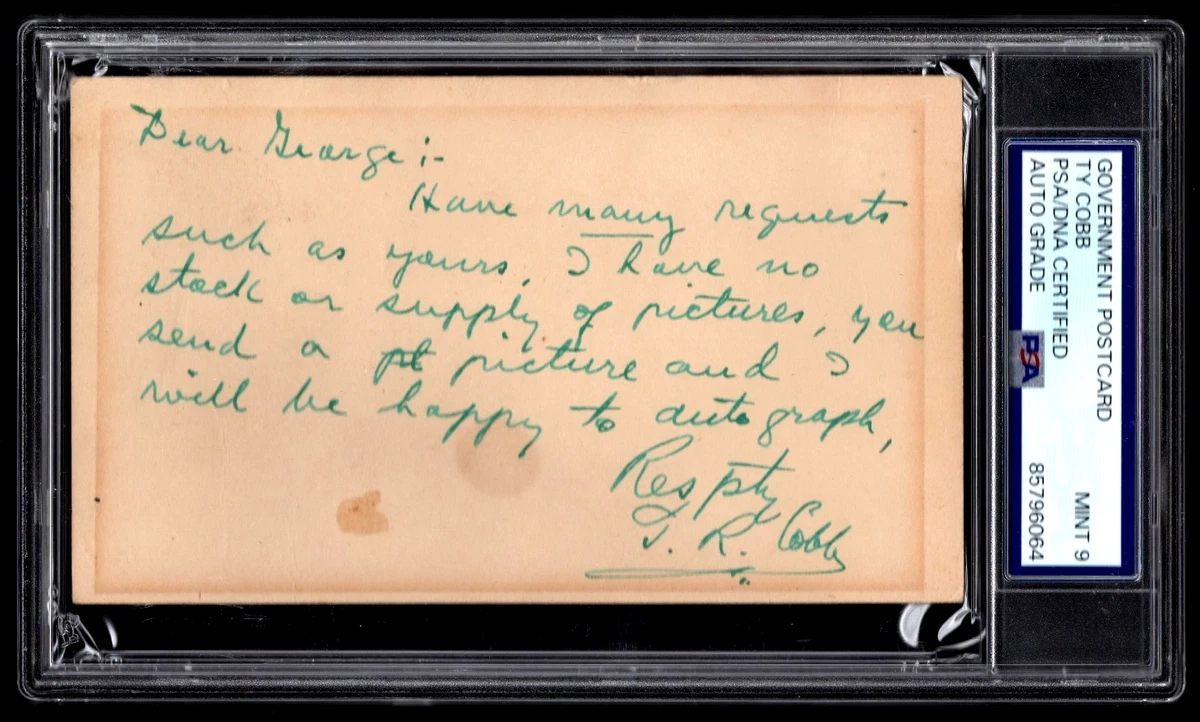 Dear George:-
Have many requests
such as yours, I have no
stock or supply of pictures, you
send a pt picture and I
will be happy to autograph,
Respty
T. R. Cobb
GOVERNMENT POSTCARD
TY COBB MINT 9
PSA/DNA CERTIFIED
AUTO GRADE 85796064
PSA